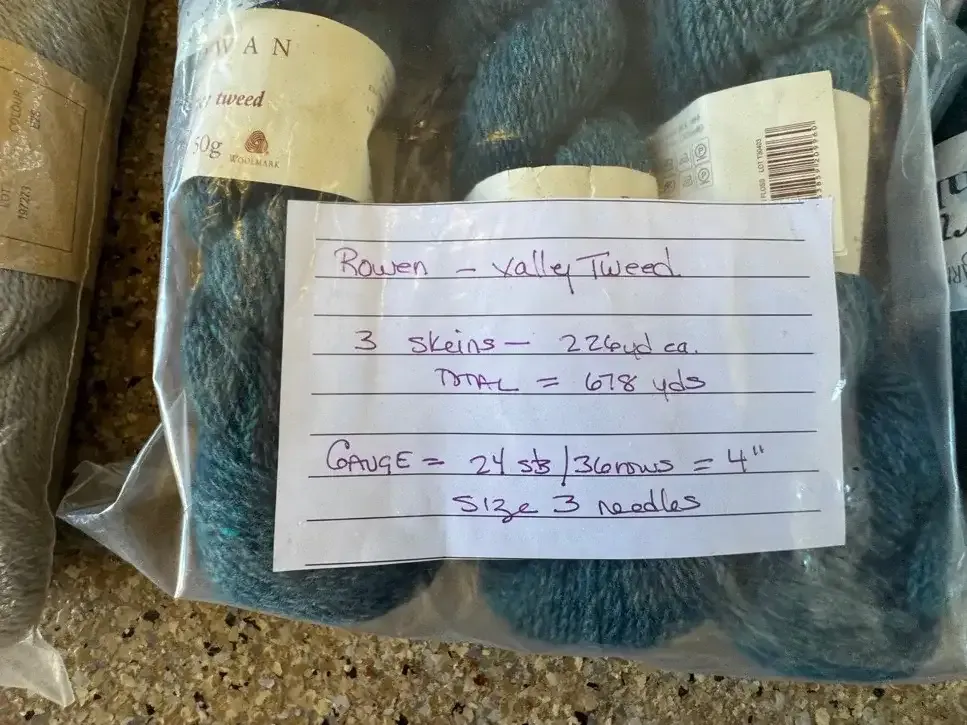 COLOUR
LOT
197223
WAN
tweed
50g
WOOLMARK
LOT
Rowen - Valley Tweed
3 Skeins - 226yd ea.
TOTAL = 678 yds
GAUGE = 24 sts/36rows = 4"
Size 3 needles